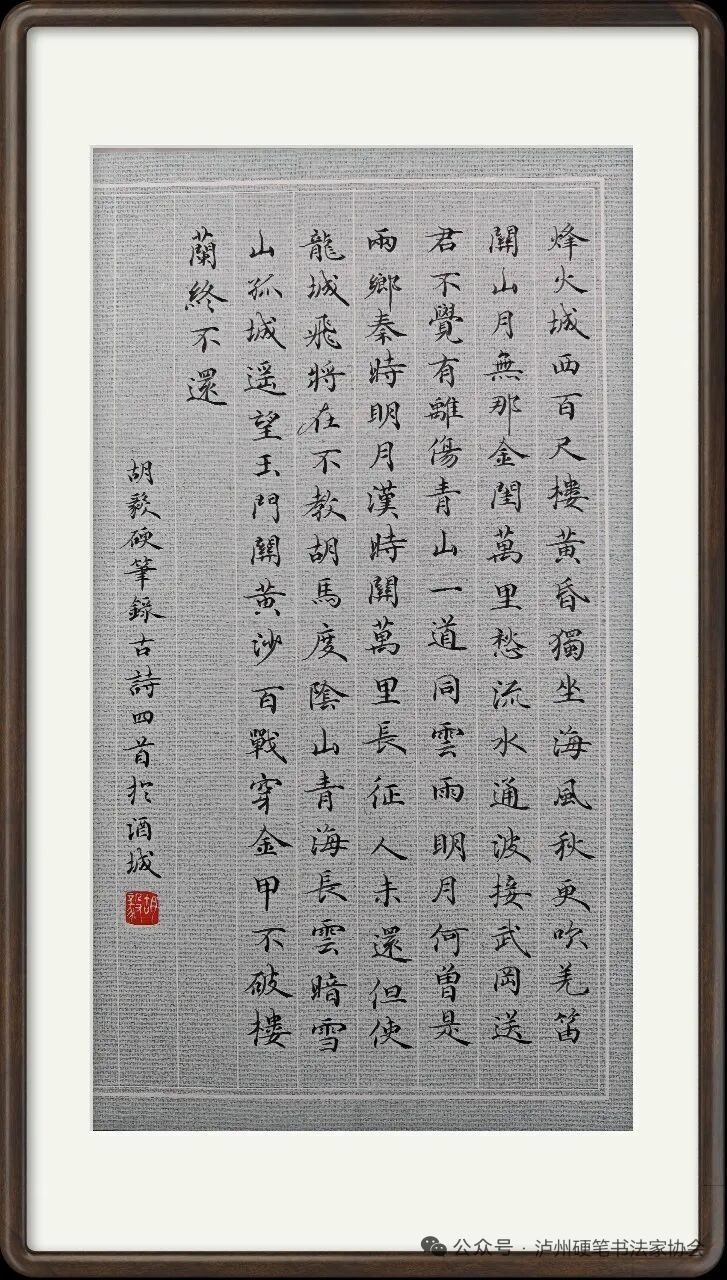 烽火城西百尺樓黃昏獨坐海風秋更吹羌笛
關山月無那金閨萬里愁流水通波接武岡送
君不覺有離傷青山一道同雲雨明月何曾是
兩鄉秦時明月漢時關萬里長征人未還但使
龍城飛將在不教胡馬度陰山青海長雲暗雪
山孤城遥望玉門關黃沙百戰穿金甲不破樓
蘭終不還
胡毅硬筆錄古詩四首於酒城
胡毅
公众号·泸州硬笔书法家协会